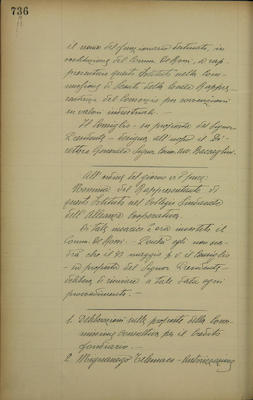 736
il nome del funzionario destinato, in
sostituzione del Comm. De Rossi, a rap-
presentare questo Istituto nella Com-
missione di Sconto della locale Rappre-
sentanza del Consorzio per sovvenzioni
su valori industriali. -
Il Consiglio - su proposta del Signor
Presidente - designa all'uopo il Di-
rettore Generale Signor Comm. Avv.
All'ordine del giorno vi è pure:
Nomina del Rappresentante di
questo Istituto nel Collegio Sindacale
dell'Alleanza Cooperativa.
Di tale incarico è ora investito il
Comm. De Rossi. - Poichè egli non
che il 23 maggio p.v. il Consiglio
- su proposta del Signor Presidente -
delibera di rinviare a tale data ogni
provvedimento. -
1. Deliberazioni sulle proposte della Com-
missione consultiva per il Credito
fondiario. -
2. Telemaco -